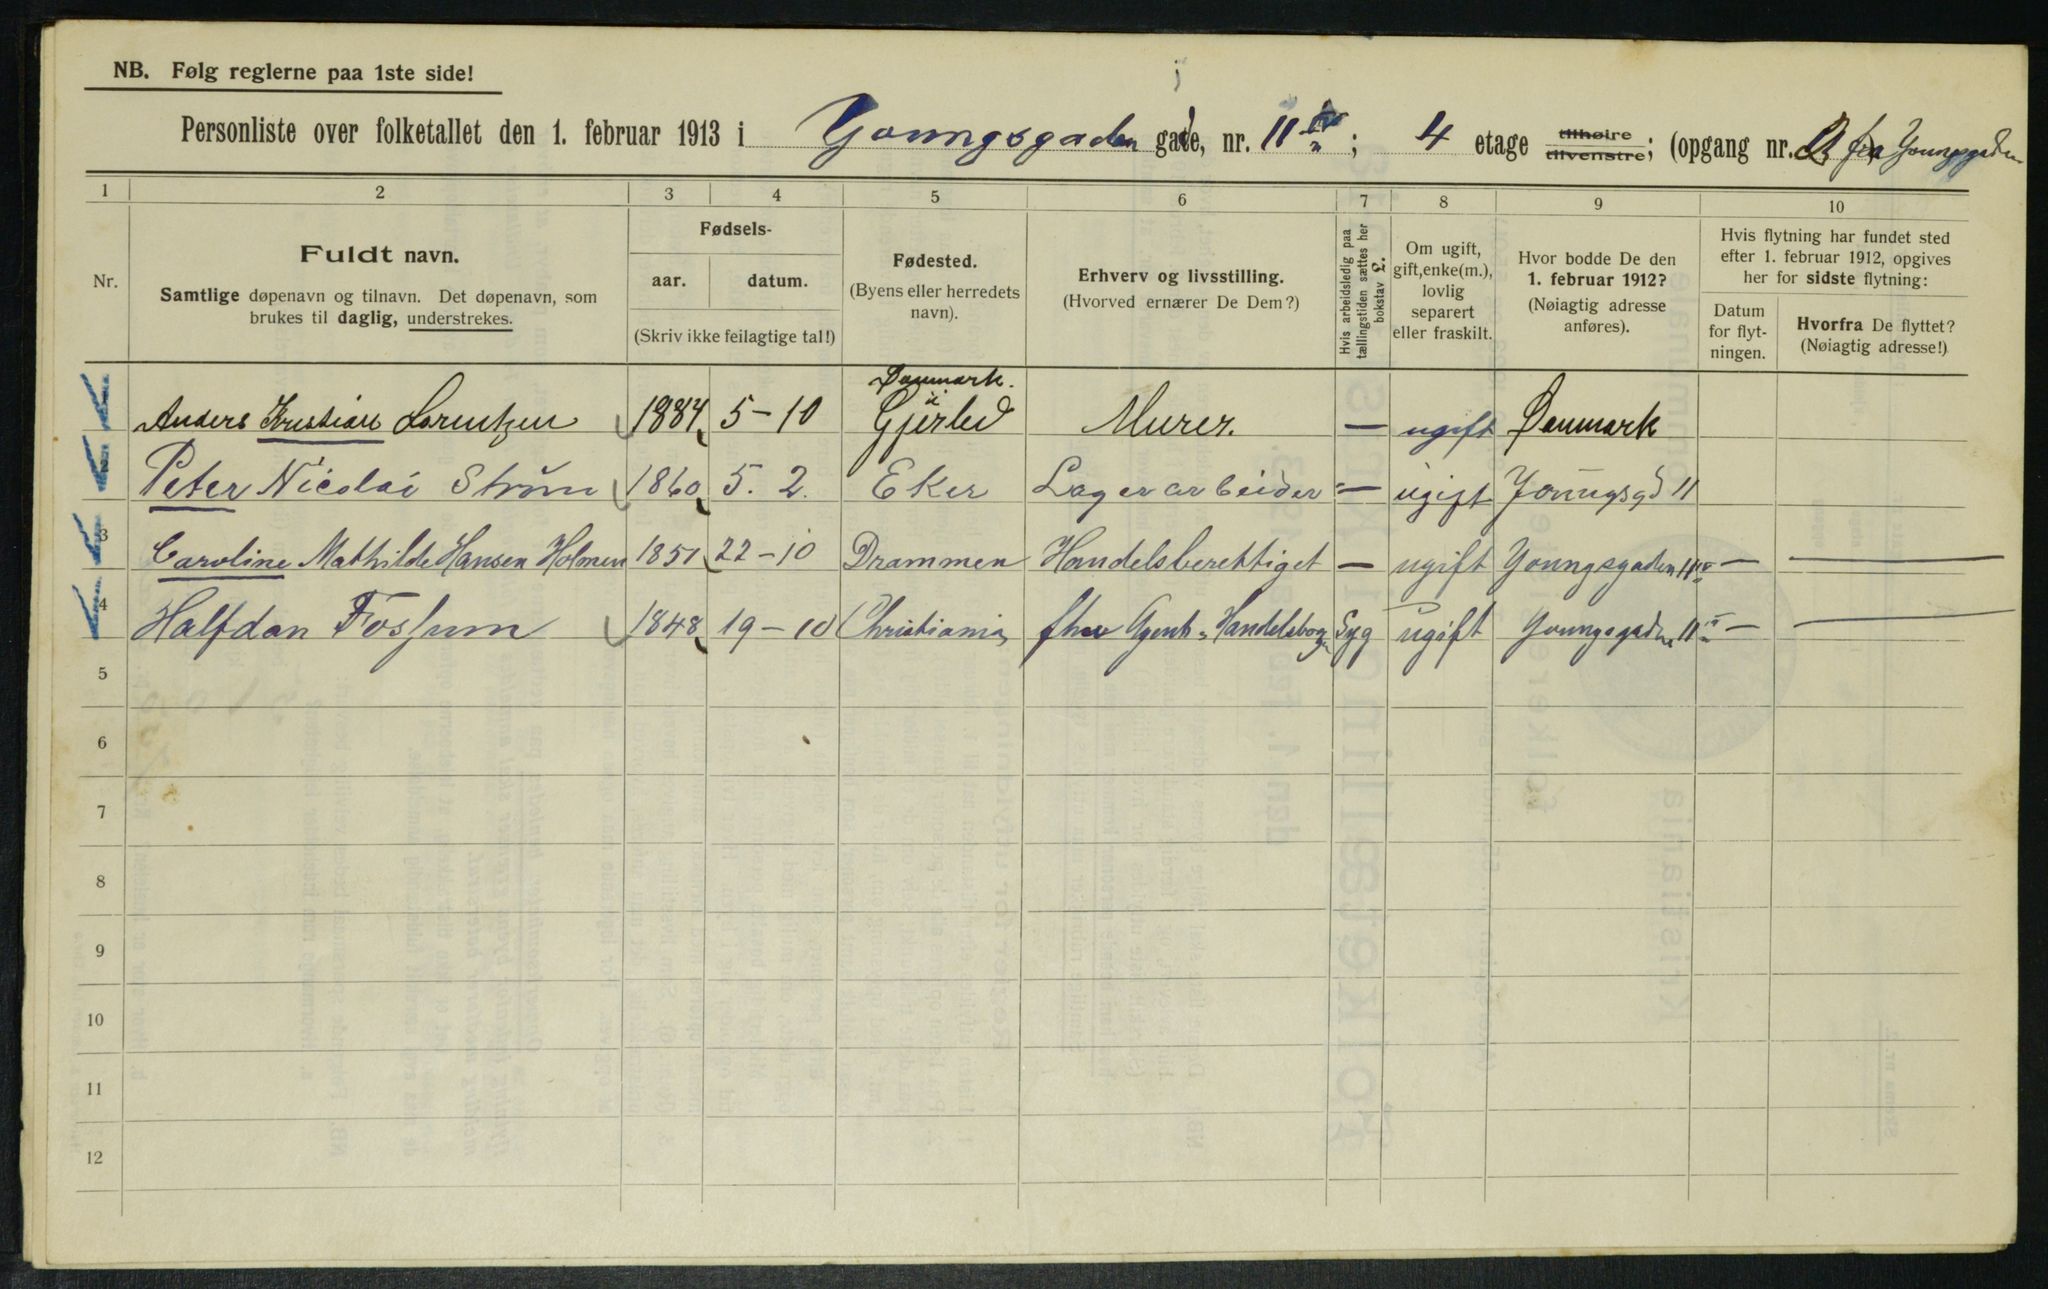 NB. Følg reglerne paa 1ste side!
Personliste over folketallet den 1. februar 1913 i Youngsgaden gade, nr. 11; 4 etage tilhøire tilvenstre; (opgang nr. fra Youngsgaden
1 2 3 4 5 6 7 8 9 10
Nr.
Fuldt navn.
Samtlige døpenavn og tilnavn. Det døpenavn, som
brukes til daglig, understrekes.
Fødsels-
aar. datum.
(Skriv ikke feilagtige tal!)
Fødested.
(Byens eller herredets
navn).
Erhverv og livsstilling.
(Hvorved ernærer De Dem?)
Hvis arbeidsledig paa
tællingstiden sættes her
bokstav L.
Om ugift,
gift, enke(m.),
lovlig
separert
eller fraskilt.
Hvor bodde De den
1. februar 1912?
(Nøiagtig adresse
anføres).
Hvis flytning har fundet sted
efter 1. februar 1912, opgives
her for sidste flytning:
Datum
for flyt-
ningen.
Hvorfra De flyttet?
(Nøiagtig adresse!)
Danmark.
Anders Kristian Lorentzen 1884 5-10 i Gjerlev Murer. — ugift Danmark
2 Peter Nicolai Strøm 1860 5. 2. Eker Lagerarbeider — ugift Youngsgd 11
3 Caroline Mathilde Hansen Holmen 1851 22-10 Drammen Handelsberettiget — ugift Youngsgaden 11 IV — —
4 Halfdan Fossum 1848 19-10 Christiania fhv Agent Syg ugift Youngsgaden 11 — —
5
6
7
8
9
10
11
12